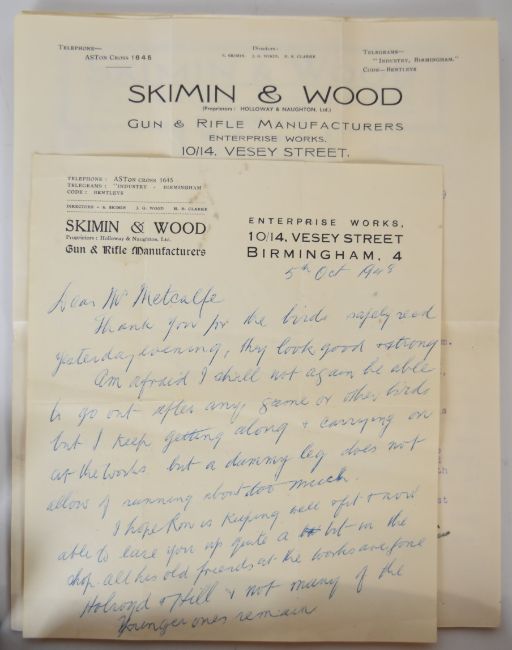 TELEPHONE—
ASTON CROSS 1645
Directors:
S. SKIMIN J. G. WOOD. H. S. CLARKE
TELEGRAMS—
"INDUSTRY, BIRMINGHAM."
CODE—BENTLEYS
SKIMIN & WOOD
(Proprietors: HOLLOWAY & NAUGHTON, Ltd.)
GUN & RIFLE MANUFACTURERS
ENTERPRISE WORKS.
10/14, VESEY STREET,
TELEPHONE: ASTON CROSS 1645
TELEGRAMS: "INDUSTRY - BIRMINGHAM
CODE: BENTLEYS
DIRECTORS - S. SKIMIN J. G. WOOD H. S. CLARKE
SKIMIN & WOOD
Proprietors: Holloway & Naughton, Ltd.
Gun & Rifle Manufacturers
ENTERPRISE WORKS,
10/14, VESEY STREET
BIRMINGHAM, 4
5th Oct 1948
Dear Mr Metcalfe
Thank you for the birds safely recd
yesterday evening, they look good & strong.
Am afraid I shall not again be able
to go out after any game or other birds
but I keep getting along & carrying on
at the works. but a dummy leg does not
allow of running about too much.
I hope Ron is keeping well & fit & now
able to ease you up quite a bit in the
shop. all his old friends at the works are gone
Holroyd & Hill & not many of the
Younger ones remain